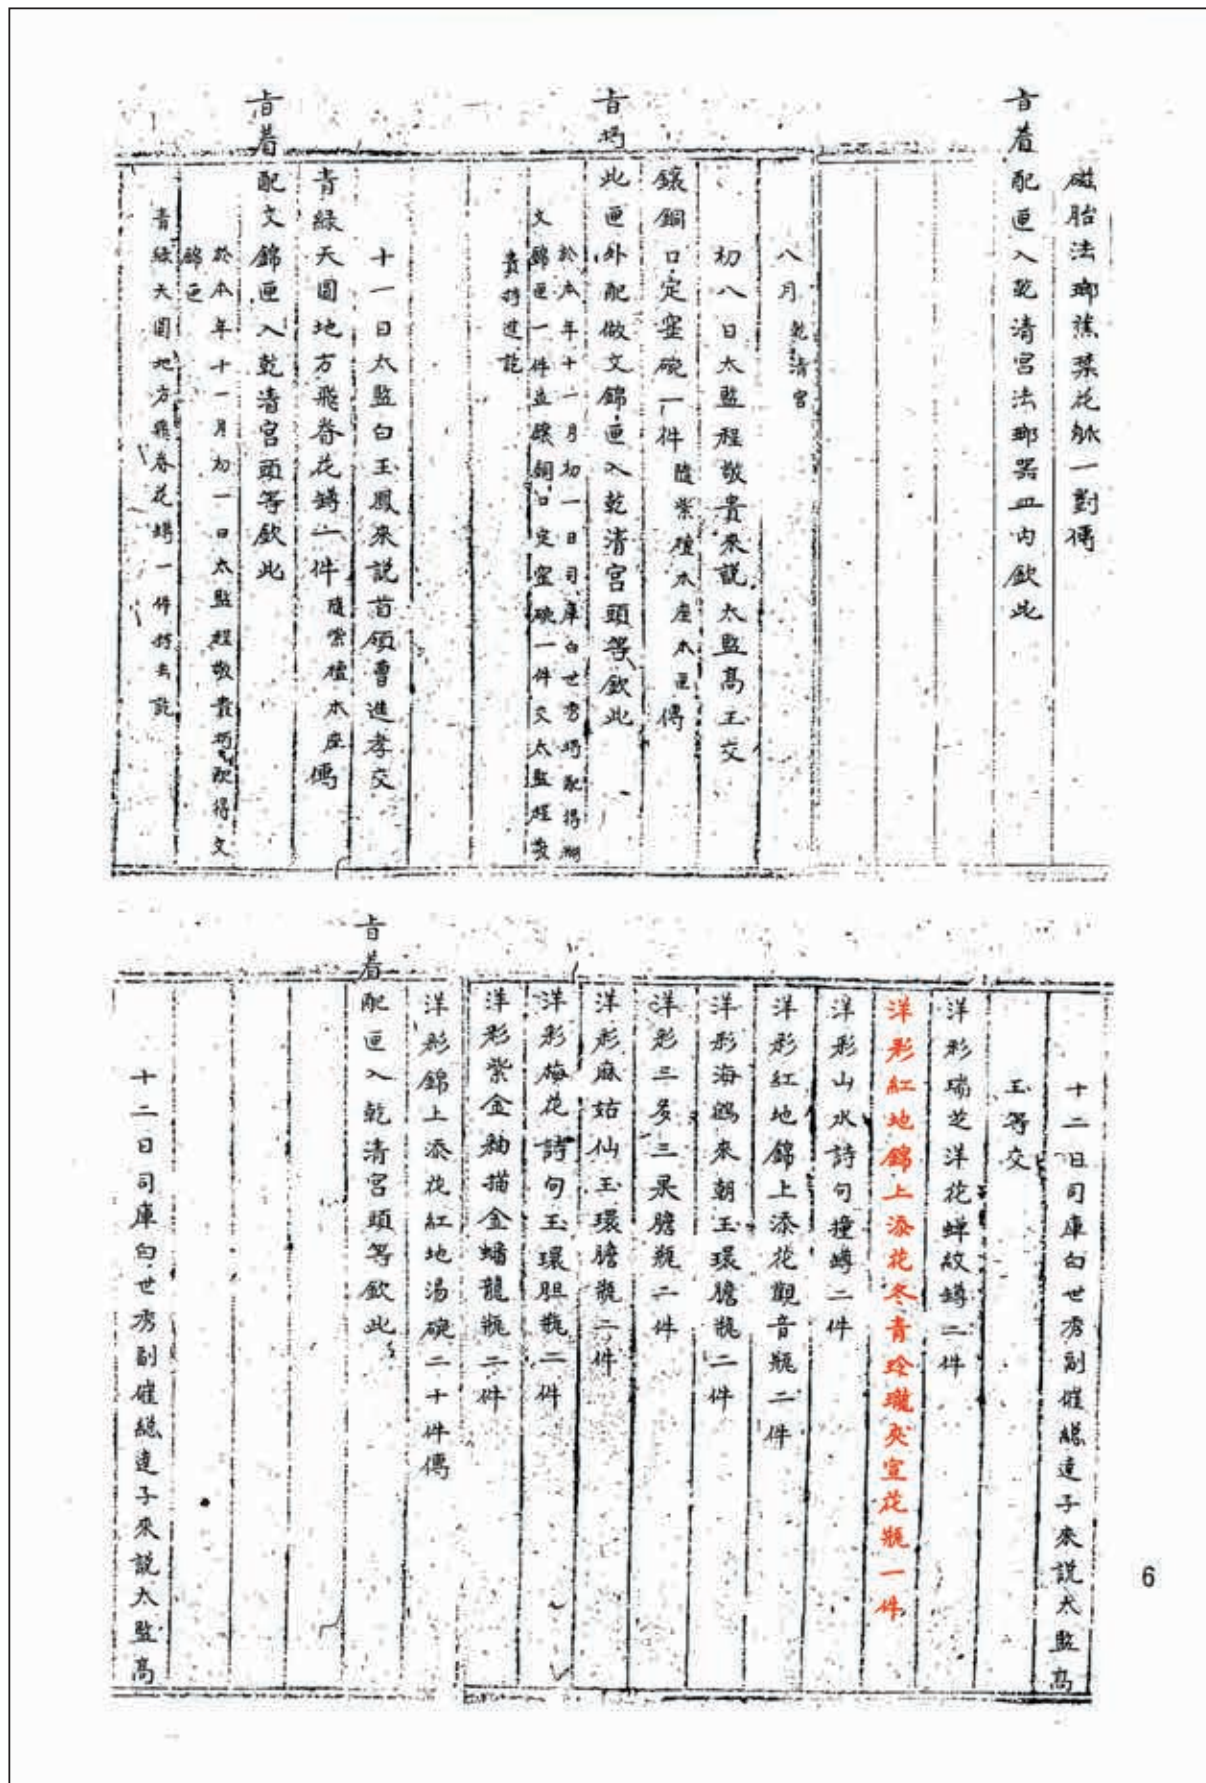 磁胎法瑯蕉葉花觚一對傳
旨着配匣入乾清宮法瑯器皿內欽此
八月 乾清宮
初八日太監程敬貴來說太監高玉交
鑲銅口定窑碗一件 隨紫檀木座木匣 傳
旨將此匣外配做文錦匣入乾清宮頭等欽此
於本年十一月初一日司庫白世秀將配得糊
文錦匣一件並鑲銅口定窑碗一件交太監程敬
貴持進訖
十一日太監白玉鳳來說首領曹進孝交
青緑天圓地方飛脊花罇一件 隨紫檀木座 傳
旨着配文錦匣入乾清宮頭等欽此
於本年十一月初一日太監程敬貴將配得文
錦匣
青緑天圓地方飛脊花罇一件持去訖
十二日司庫白世秀副催總達子來說太監高
玉等交
洋彩瑞芝洋花蟬紋罇二件
洋彩紅地錦上添花冬青玲瓏夾宣花瓶一件
洋彩山水詩句撞罇二件
洋彩紅地錦上添花觀音瓶二件
洋彩海鶴來朝玉環膽瓶二件
洋彩三多三果膽瓶二件
洋彩麻姑仙玉環膽瓶二件
洋彩梅花詩句玉環胆瓶二件
洋彩紫金釉描金蟠龍瓶二件
洋彩錦上添花紅地湯碗二十件傳
旨着配匣入乾清宮頭等欽此
十二日司庫白世秀副催總達子來說太監高
6